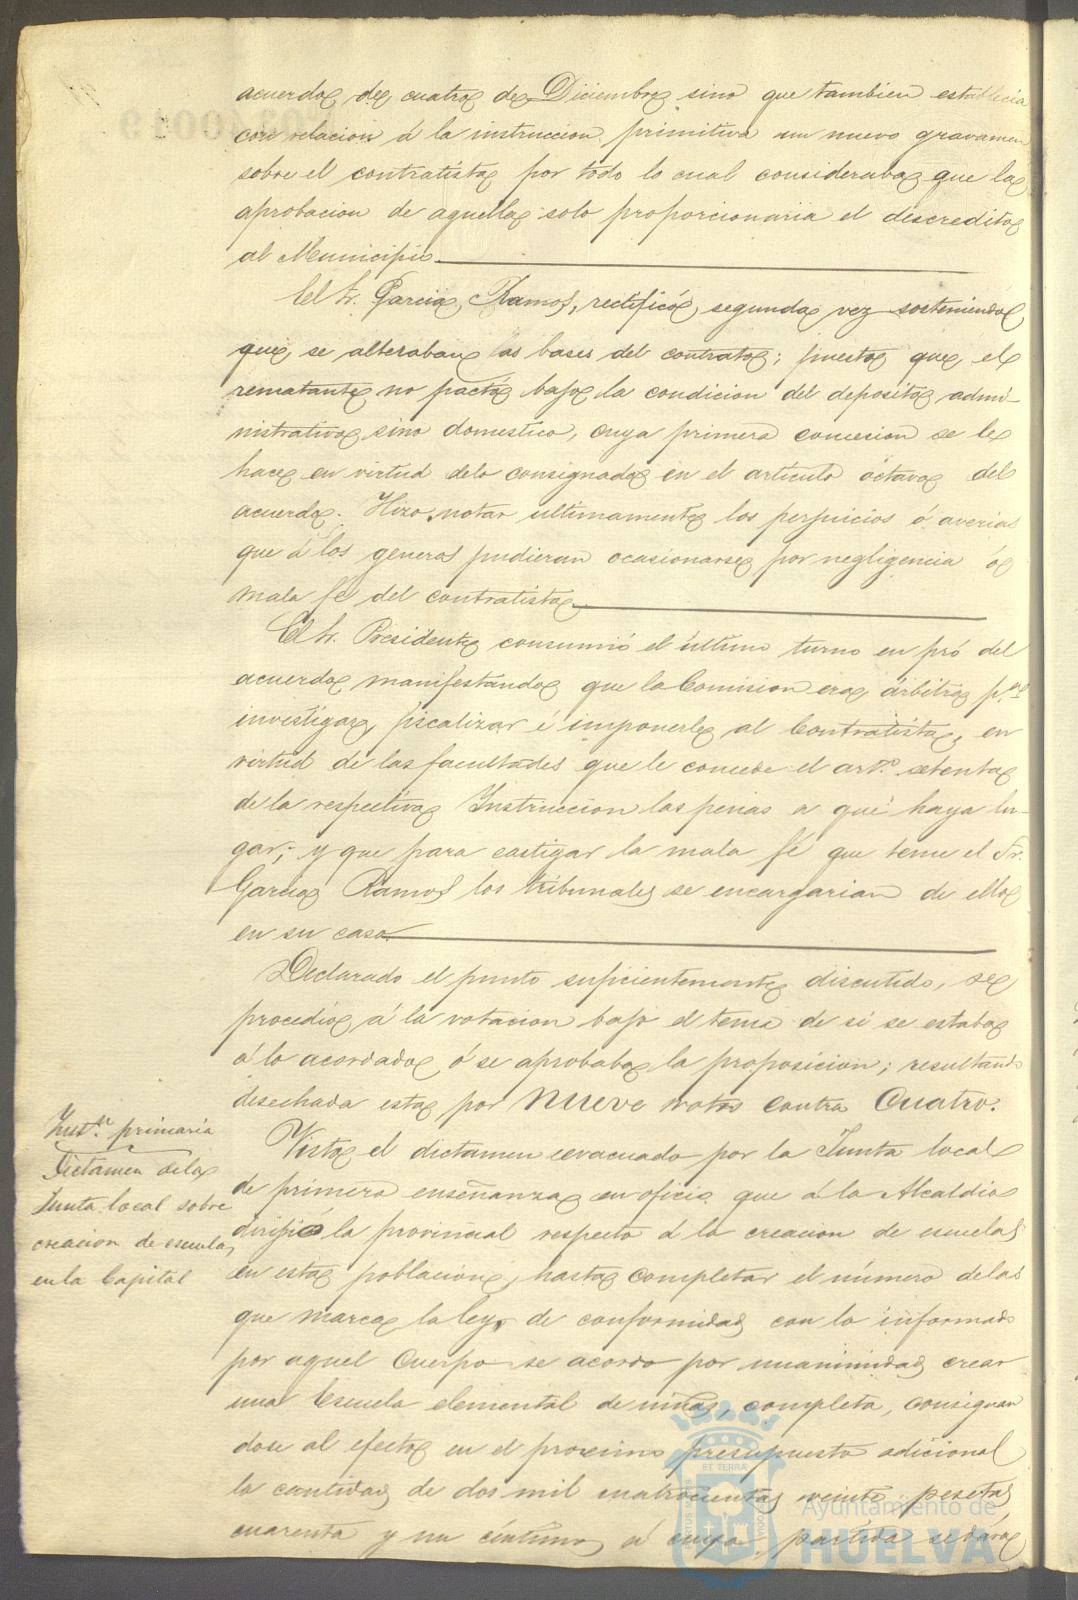 acuerdo de cuatro de Diciembre sino que tambien establecia
con relacion á la instruccion primitiva un nuevo gravamen
sobre el contratista por todo lo cual consideraba que la
aprobacion de aquella solo proporcionaria el descredito
al Municipio.
El Sr. Garcia Ramos, rectificó segunda vez sosteniendo
que se alteraban las bases del contrato; puesto que el
rematante no pactó bajo la condicion del deposito admi-
nistrativo sino domestico, cuya primera concesion se le
hace en virtud delo consignado en el articulo octavo del
acuerdo. Hizo notar ultimamente los perjuicios ó averias
que á los generos pudieran ocasionarse por negligencia ó
mala fé del contratista
El Sr. Presidente consumió el último turno en pró del
acuerdo manifestando que la Comision era árbitra p.ª
investigar, fiscalizar é imponerle al Contratista, en
virtud de las facultades que le concede el art.º setenta
de la respectiva Instruccion las penas a que haya lu-
gar; y que para castigar la mala fé que teme el Sr.
Garcia Ramos los tribunales se encargarian de ello
en su caso
Declarado el punto suficientemente discutido, se
procedió á la votacion bajo el tema de si se estaba
á lo acordado ó se aprobaba la proposicion; resultando
desechada esta por nueve votos contra Cuatro.
Inst.n primaria
Dictamen dela
Junta local sobre
creacion de escuelas
en la Capital
Vista el dictamen evacuado por la Junta local
de primera enseñanza en oficio que á la Alcaldia
dirijió la provincial respecto á la creacion de escuelas
en esta poblacion, hasta completar el número delas
que marca la ley, de conformidad con lo informado
por aquel Cuerpo se acordo por unanimidad crear
una Escuela elemental de niñas, completa, consignan
dose al efecto en el proximo presupuesto adicional
la cantidad de dos mil cuatrocientas veinte pesetas
cuarenta y un céntimos á cuya partida se dára
ET TERRÆ
Ayuntamiento de
HUELVA